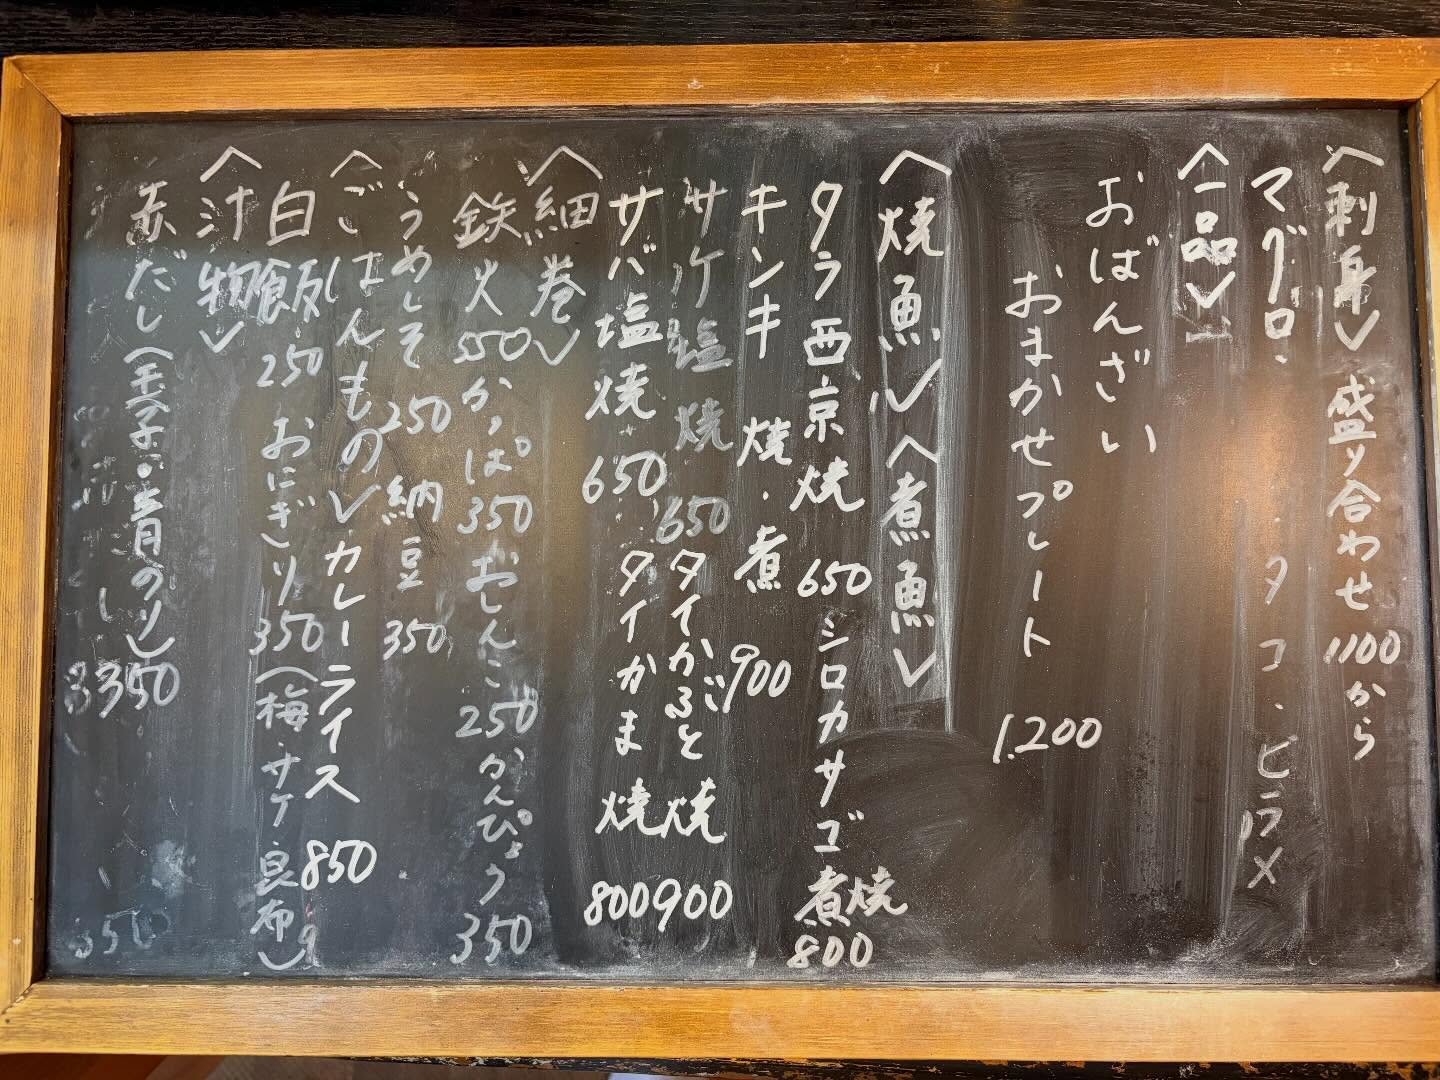 〈刺身〉盛り合わせ 1100から
マグロ・タコ・ヒラメ
〈一品〉
おばんざい
おまかせプレート 1.200
〈焼魚〉〈煮魚〉
タラ西京焼 650 シロカサゴ 煮焼 800
キンキ 焼・煮 900
サケ塩焼 650 タイかぶと焼 900
サバ塩焼 650 タイかま焼 800
〈細巻〉
鉄火 550 かっぱ 350 おしんこ 250 かんぴょう 350
うめしそ 250 納豆 350
〈ごはんもの〉カレーライス 850
白飯 250 おにぎり 350 (梅・サケ・昆布)
〈汁物〉
赤だし(玉子・青のり) 350
350